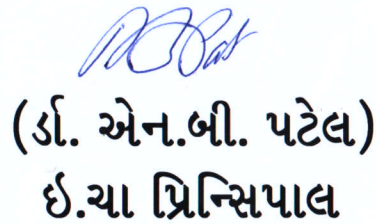 (ર્ડા. એન.બી. પટેલ)
ઇ.ચા પ્રિન્સિપાલ